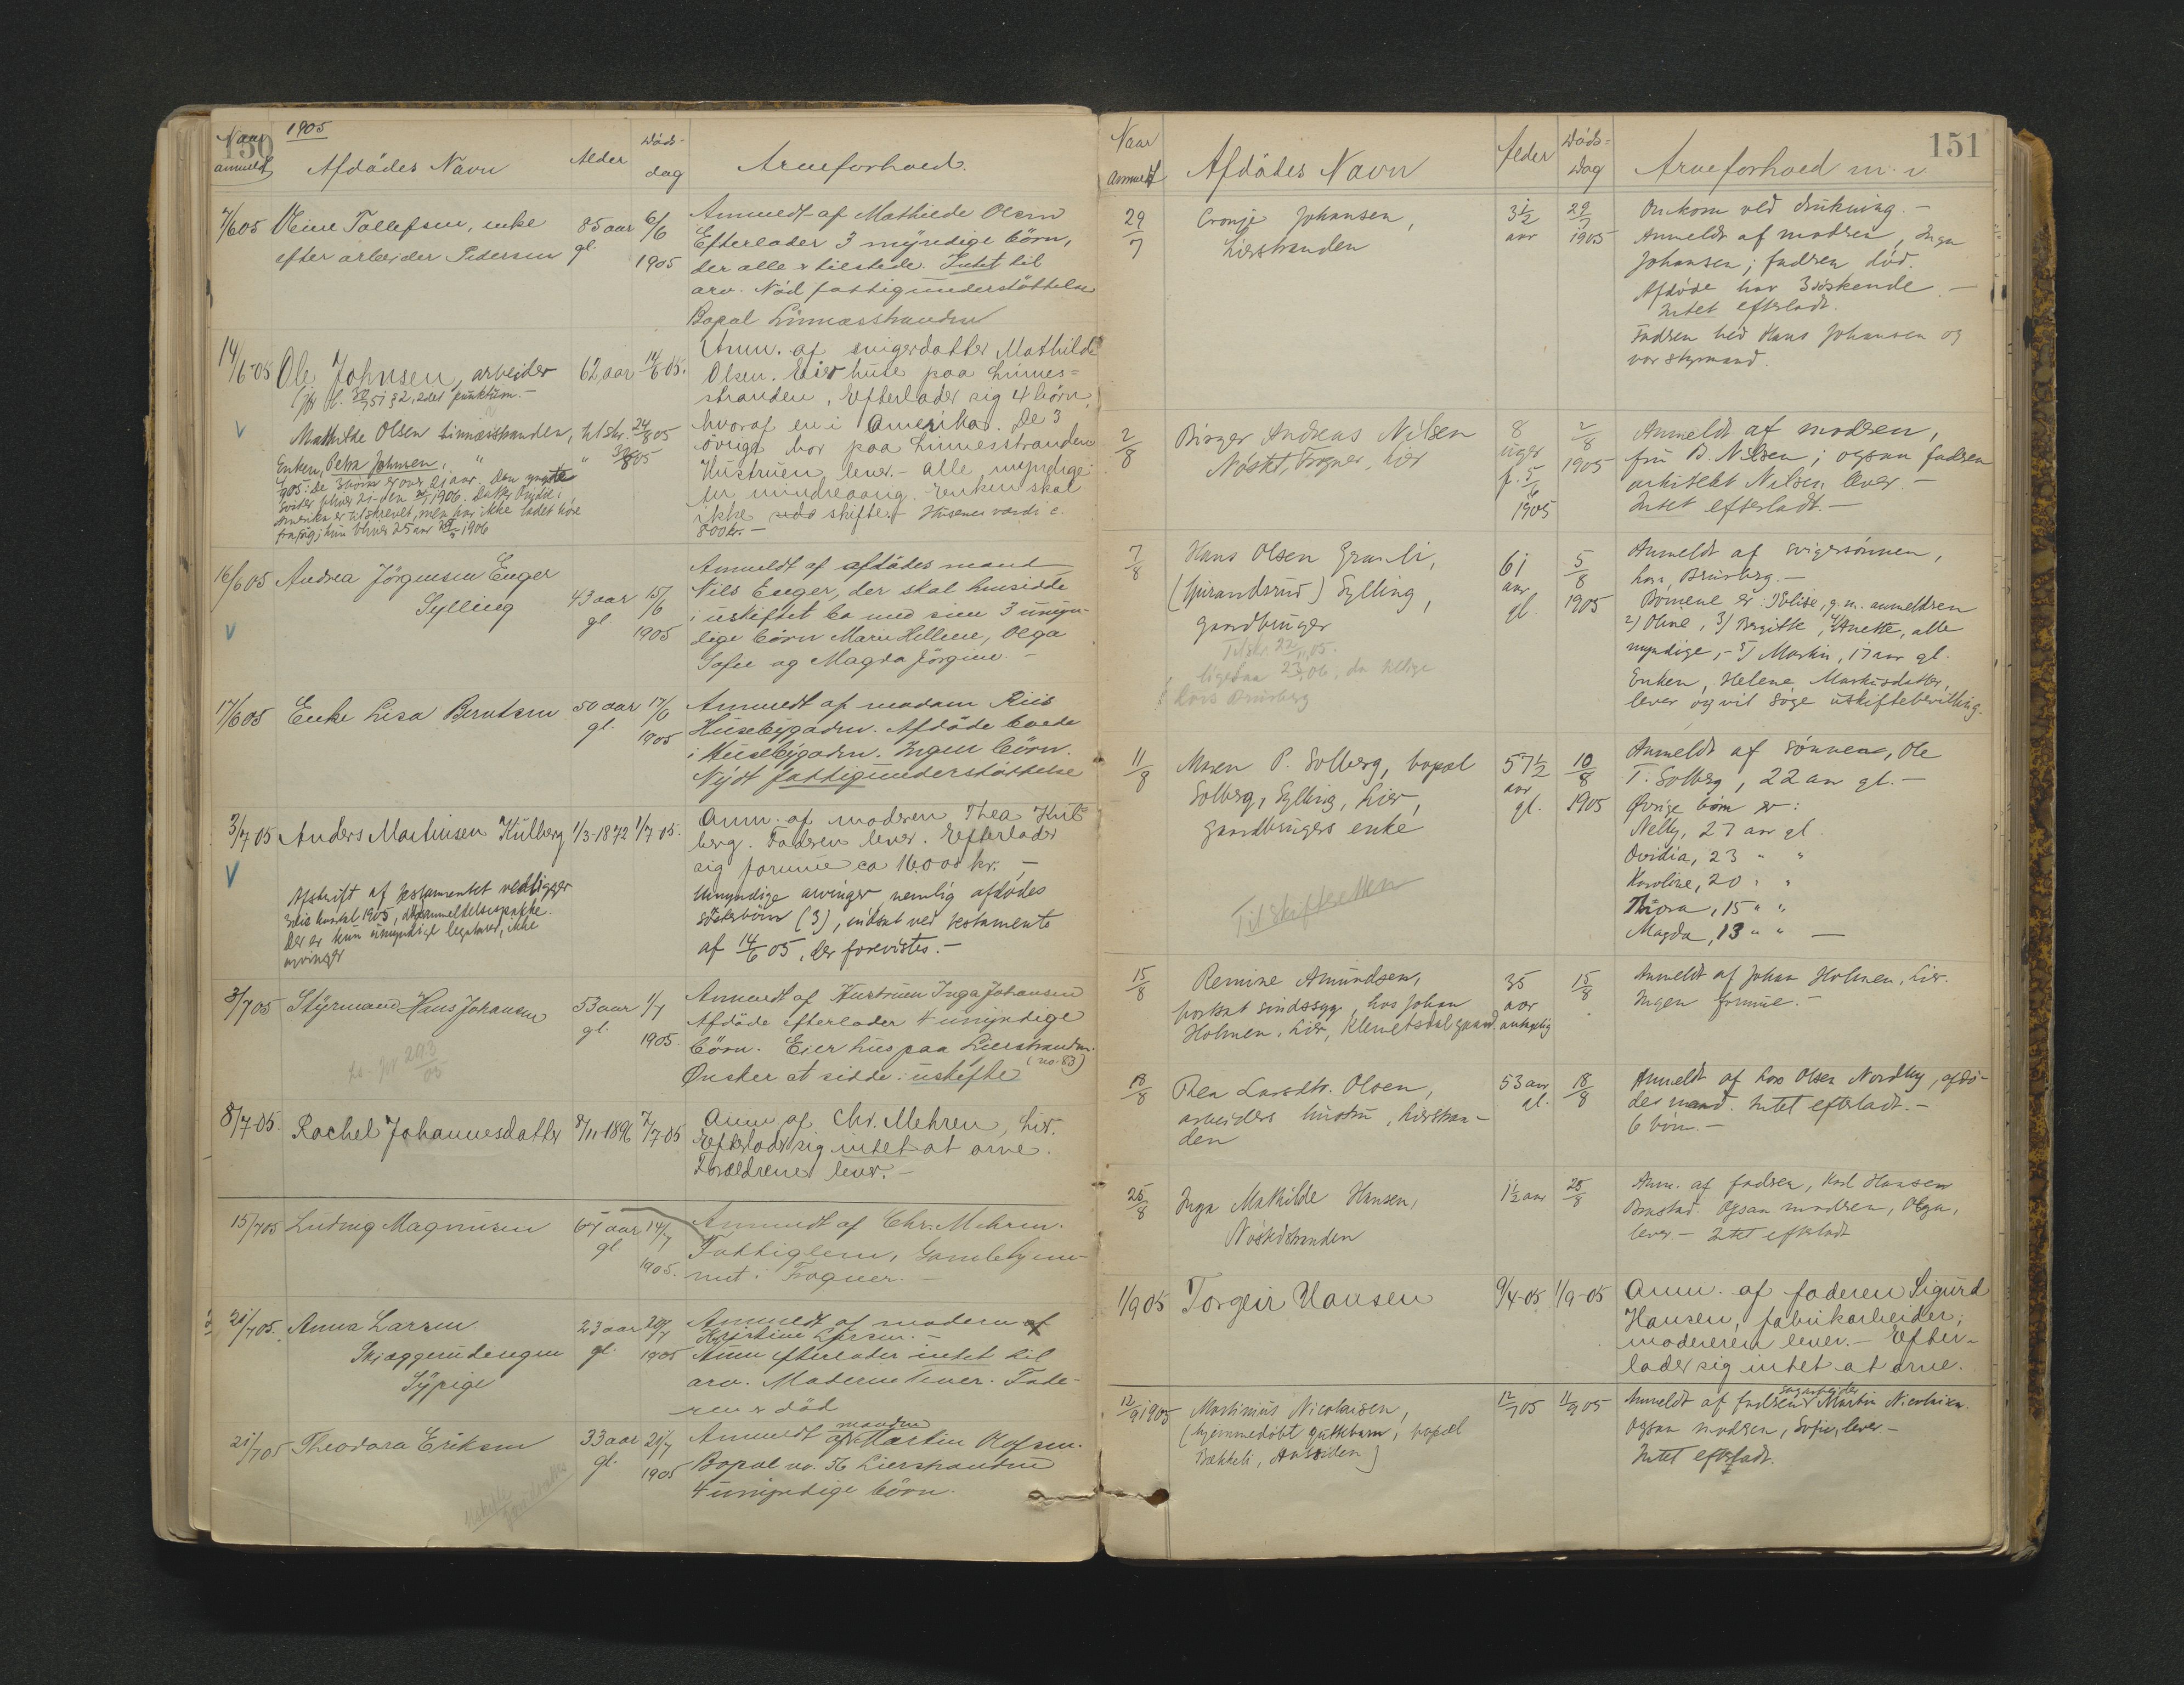 150
1905
Naar anmeldt
Afdødes Navn
Alder
Døds-dag
Arveforhold.
7/6 05
Oline Tollefsen, enke
efter arbeider Pedersen
85 aar gl.
6/6 1905
Anmeldt af Mathilde Olsen
Efterlader 3 myndige børn,
der alle er tilstede. Intet til
arv. Nød fattigunderstøttelse
Bopæl Linnesstranden
14/6-05
Ole Johnsen, arbeider
(jfr l. 30/7 51 § 2, 2det punktum.-
62 aar
14/6 05.
Mathilde Olsen Linnesstranden, tilskr. 24/8 05
Enken, Petra Johnsen, " "
905: De 3 børn er over 21 aar. Den yngste
søster bliver 21 den 1906. Datter
Amerika er tilskrevet, men har ikke ladet høre
fra sig; hun bliver 25 aar 1906
Anm. af svigerdatter Mathilde
Olsen. Eier huse paa Linnes-
stranden, Efterlader sig 4 børn,
hvoraf en i Amerika. De 3
øvrige bor paa Linnesstranden
Hustruen lever. - Alle myndige
en mindreaarig. Enken skal
ikke skifte. - Husenes værdi c.
800 kr. -
16/6 05
Andrea Jörgensen Enger
Sylling
43 aar gl
15/6 1905
Anmeldt af afdødes mand
Nils Enger, der skal hensidde
i uskiftet bo med sine 3 umyn-
dige børn Marie Hellene, Olga
Sofie og Magda Jörgine. -
17/6 05
Enke Lisa Berntsen
50 aar gl.
17/6 1905
Anmeldt af madam Riis
Husebygaden. Afdøde boede
i Husebygaden. Ingen børn.
Nydt fattigunderstøttelse
3/7 05
Anders Martinsen Kulberg
1/3-1872
1/7 05.
Afskrift af testamentet vedligger
3die kvartal 1905, dødsanmeldelsespakke.
Der er kun umyndige legatarer, ikke
arvinger
Anm. af moderen Thea Kul-
berg. Faderen lever. Efterlader
sig formue ca 16.000 kr. -
Umyndige arvinger nemlig afdødes
søsterbörn (3), indsat ved testamente
af 14/6 05, der forevistes. -
3/7 05
Styrmand Hans Johansen
53 aar gl
1/7 1905.
Anmeldt af Hustruen Inga Johansen
Afdöde efterlader 4 umyndige
børn. Eier hus paa Lierstranden.
(no. 83)
Önsker at sidde i uskifte
8/7-05.
Rachel Johannesdatter
8/11-1896
7/7-05
Anm. af Chr. Mehren, Lier.
Efterlader sig intet at arve.
Forældrene lever. -
15/7 05
Ludvig Magnussen
67 aar gl
14/7 1905.
Anmeldt af Chr. Mehren.
Fattiglem, Gamlehjem-
met i Frogner. -
21/7 05.
Anna Larsen
Skjæggerudengen
Sypige
23 aar gl.
20/7 1905
Anmeldt af moderen
Kristine Larsen. -
Anna efterlader intet til
arv. Moderen lever. Fade-
ren er död
21/7 05
Theodora Eriksen
33 aar gl.
21/7 1905
Anmeldt af manden Martin Olafsen.
Bopæl no. 56 Lierstranden
4 umyndige börn.
151
Naar anmeldt
Afdødes Navn
Alder
Døds-Dag
Arveforhold m. v.
29/7
Cronje Johansen,
Lierstranden
3 1/2 aar
29/7 1905
Omkom ved drukning. -
Anmeldt af modren, Inga
Johansen; fadren död.
Afdøde har 3 søskende. -
Intet efterladt.
Fadren hed Hans Johansen og
var styrmand.
2/8
Birger Andreas Nilsen
Nøstet, Frogner, Lier
8 uger
f. 5/6 1905
2/8 1905
Anmeldt af modren,
fru B. Nilsen; ogsaa fadren
arkitekt Nilsen lever. -
Intet efterladt. -
7/8
Hans Olsen Granli,
(Gjurandsrud) Sylling,
gaardbruger
Tilskr. 22/11 05.
ligesaa 23/ 06, da tillige
Lars Brusberg
61 aar gl.
5/8 1905
Anmeldt af svigersønnen,
Lars Brusberg. -
Børnene er: 1) Elise, g. m. anmeldren
2) Oline, 3) Birgitte, 4) Anette, alle
myndige, - 5) Martin, 17 aar gl.
Enken, Helene Markusdatter,
lever og vil söge uskiftebevilling.
11/8
Maren P. Solberg, bopæl
Solberg, Sylling, Lier,
gaardbrugers enke
Til Skifteretten
57 1/2 aar gl.
10/8 1905
Anmeldt af sønnen, Ole
T. Solberg, 22 aar gl. -
Øvrige børn er:
Nelly, 27 aar gl.
Ovidia, 23 " "
Karoline, 20 " "
Thora, 15 " "
Magda, 13 " " -
15/8
Remine Amundsen,
bortsat sindssyg hos Johan
Holmen, Lier, Klemetsdal gaard
35 aar antagelig
15/8
Anmeldt af Johan Holmen, Lier.
Ingen formue. -
18/8
Thea Larsdtr. Olsen,
arbeiders hustru, Lierstran-
den
53 aar gl.
18/8
Anmeldt af Lars Olsen Nordby, afdø-
des mand. Intet efterladt. -
6 børn. -
25/8
Inga Mathilde Hansen,
Nøstedstranden
1 1/2 aar
25/8
Anm. af fadren, Karl Hansen
Brastad. Ogsaa modren, Olga,
lever. - Intet efterladt
1/9 05
Torgeir Hansen
9/4-05
1/9-05
Anm. af faderen Sigurd
Hansen, fabrikarbeider;
moderen lever. - Efter-
lader sig intet at arve.
12/9 1905
Martinius Nicolaisen,
(hjemmedøbt guttebarn, bopæl
Bakkeli, Aassiden)
12/7 05
11/9 05
Anmeldt af fadren sagarbeider Martin Nicolaisen.
Ogsaa modren, Sofie, lever -
Intet efterladt.